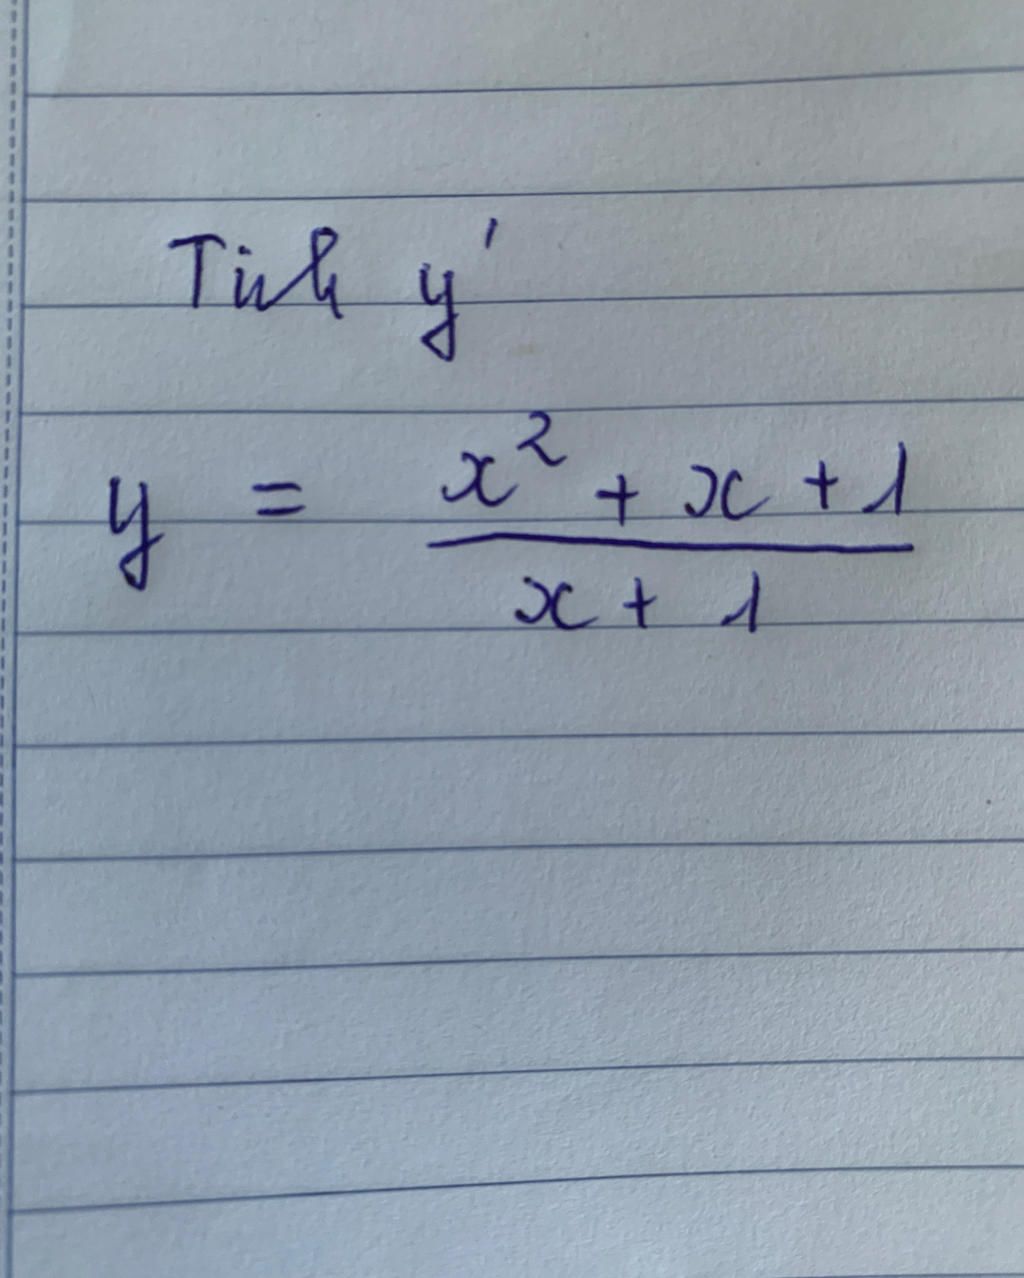 Tính y'
y = \frac{x^2 + x + 1}{x + 1}